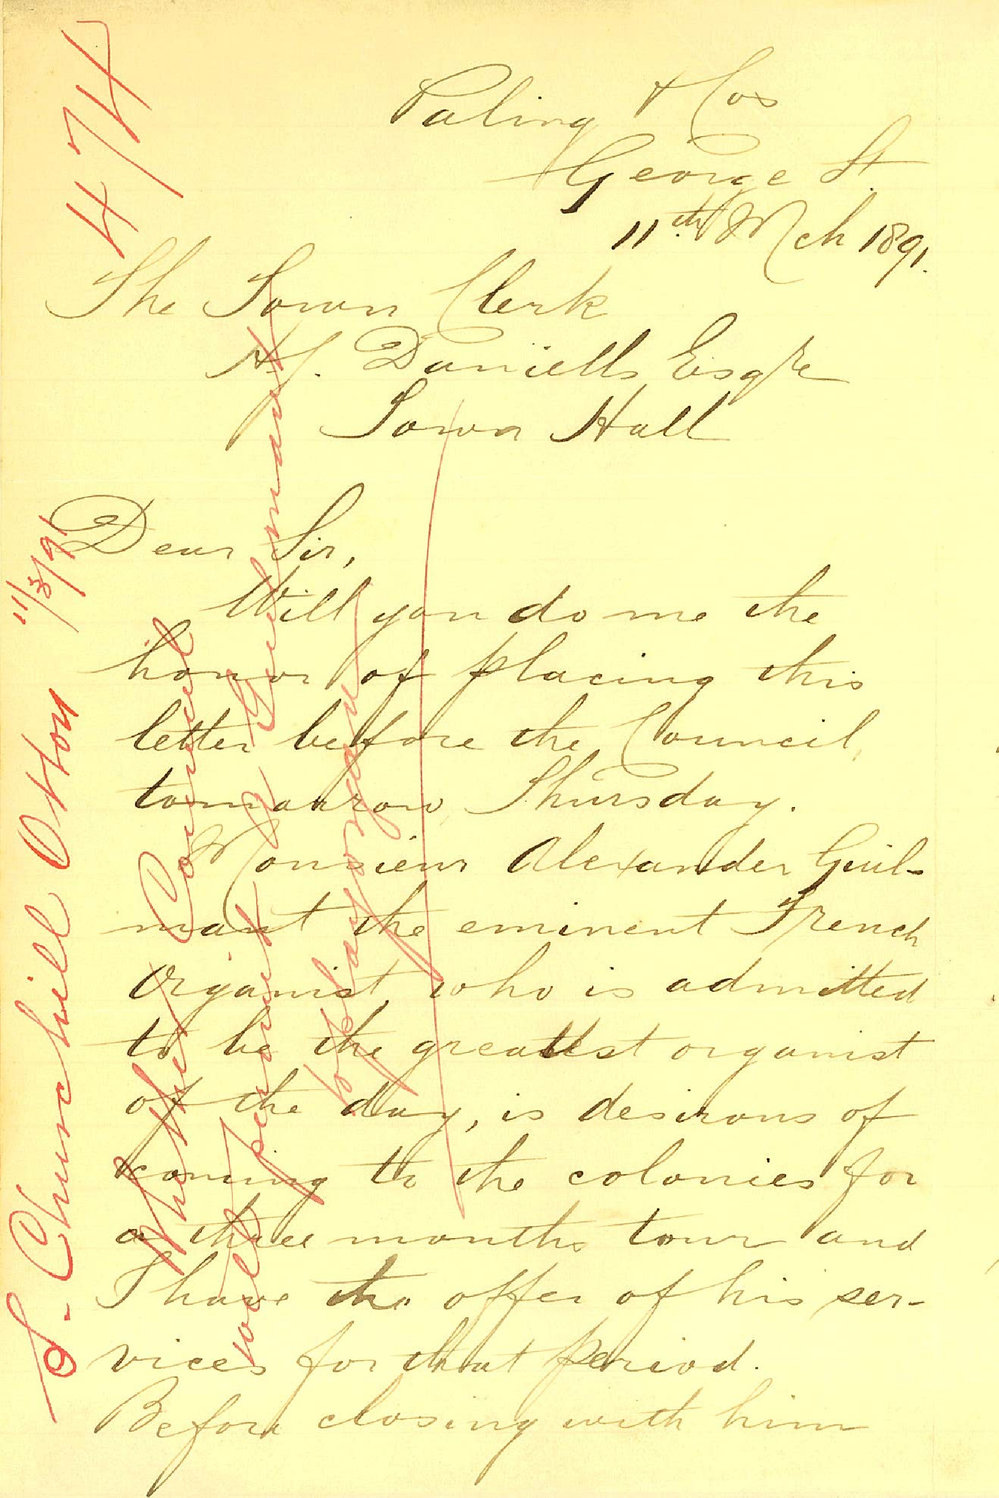 Paling & Cos
George St.
11th Mch 1891.
The Town Clerk
H.J. Daniells Esqre
Town Hall
Dear Sir,
Will you do me the
honor of placing this
letter before the Council,
tomorrow, Thursday.
Monsieur Alexander Guil-
mant the eminent French
Organist, who is admitted
to be the greatest organist
of the day, is desirous of
coming to the colonies for
a three months tour and
I have the offer of his ser-
vices for that period.
Before closing with him
474
S. Churchill Otton 11/3/91
Whether Council
will permit Guilmant
to play organ